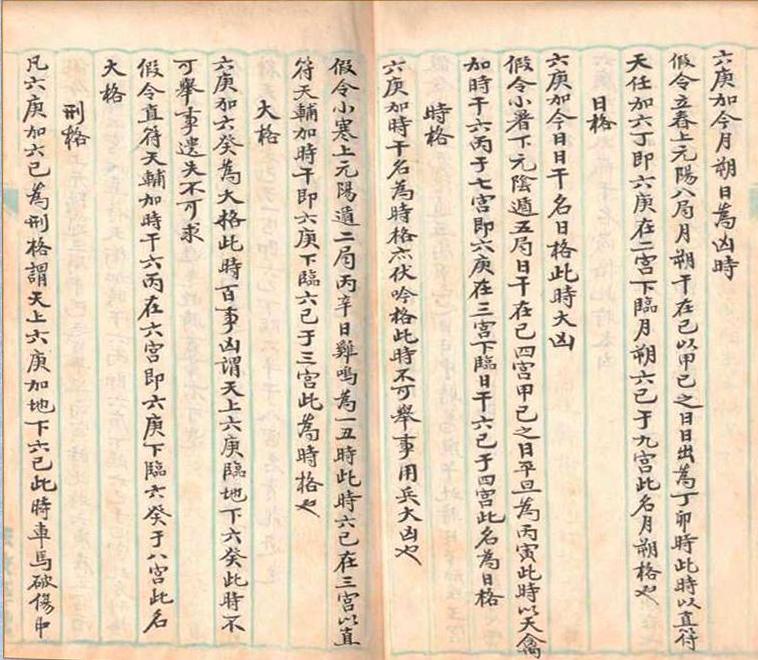 六庚加今月朔日為凶時
假令立春上元陽八局月朔干在己以甲己之日日出為丁卯時此時以直符
天任加六丁即六庚在二宮下臨月朔六己于九宮此名月朔格也
日格
六庚加今日日干名日格此時大凶
假令小暑下元陰遁五局日干在己四宮甲己之日平旦為丙寅此時以天禽
加時干六丙于七宮即六庚在三宮下臨日干六己于四宮此名為日格
時格
六庚加時干名為時格亦伏吟格此時不可舉事用兵大凶也
假令小寒上元陽遁二局丙辛日雞鳴為一丑時此時六己在三宮以直
符天輔加時干即六庚下臨六己于三宮此為時格也
大格
六庚加六癸為大格此時百事凶謂天上六庚臨地下六癸此時不
可舉事遺失不可求
假令直符天輔加時干六丙在六宮即六庚下臨六癸于八宮此名
大格
刑格
凡六庚加六己為刑格謂天上六庚加地下六己此時車馬破傷中